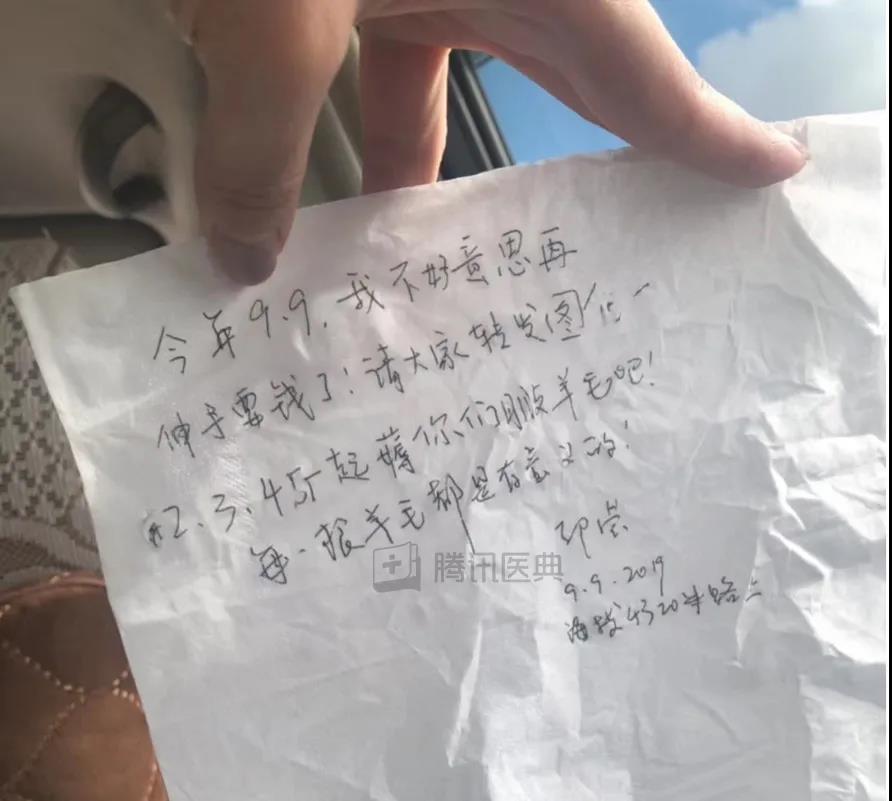 今年9.9.我不好意思再
伸手要钱了!请大家转发图片一
2.3.45一起薅你们服羊毛吧!
每一根羊毛都是有意义的!
邱崇
9.9.2019
海拔4320米路上
腾讯医典